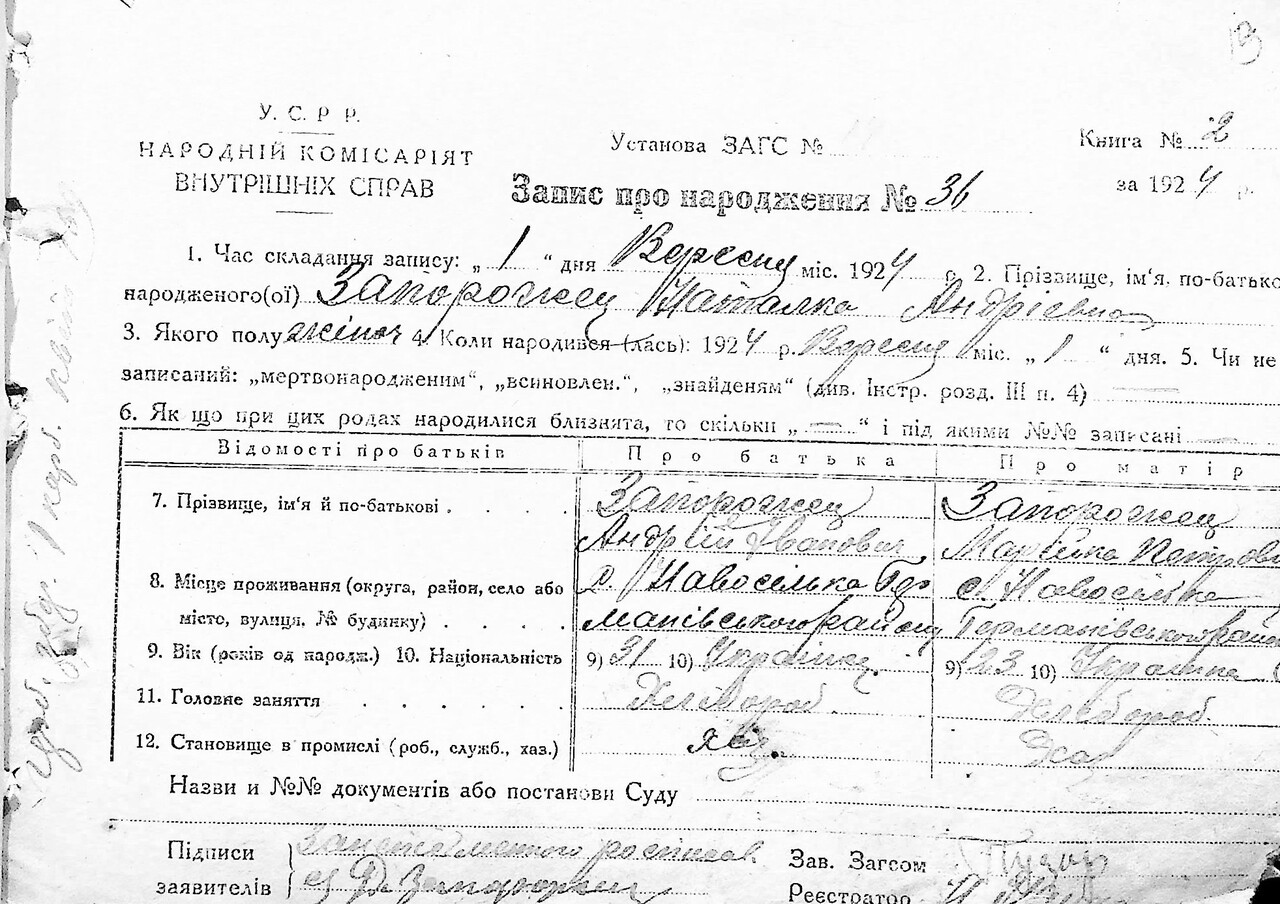 13
У. С. Р. Р.
НАРОДНІЙ КОМІСАРІЯТ
ВНУТРІШНІХ СПРАВ
Установа ЗАГС №
Книга № 2
за 1924 р.
Запис про народження № 36
1. Час складання запису: „ 1 “ дня Вересня міс. 1924 р. 2. Прізвище, ім'я, по-батько
народженого(ої) Запорожец Наталка Андрієвна
3. Якого полу жіноч 4. Коли народився (лась): 1924 р. Вересня міс. „ 1 “ дня. 5. Чи не
записаний: „мертвонародженим“, „всиновлен.“, „знайденям“ (див. Інстр. розд. III п. 4)
6. Як що при цих родах народилися близнята, то скільки „ — “ і під якими №№ записані —
Відомості про батьків Про батька Про матір
7. Прізвище, ім'я й по-батькові . . . . Запорожец Запорожец
Андрій Іванович Марійка Петров
8. Місце проживання (округа, район, село або с. Навосілька Гер с. Навосілка
місто, вулиця, № будинку) . . . . манівського району Германівського райо
9. Вік (років од народж.) 10. Національність 9) 31 10) Українец 9) 23 10) Украінка
11. Головне заняття . . . . . . Хлібороб Хлібороб.
12. Становище в промислі (роб., служб., хаз.) хаз. Хаз
Назви и №№ документів або постанови Суду
Підписи
заявителів Запорожец
Зав. Загсом
Реєстратор